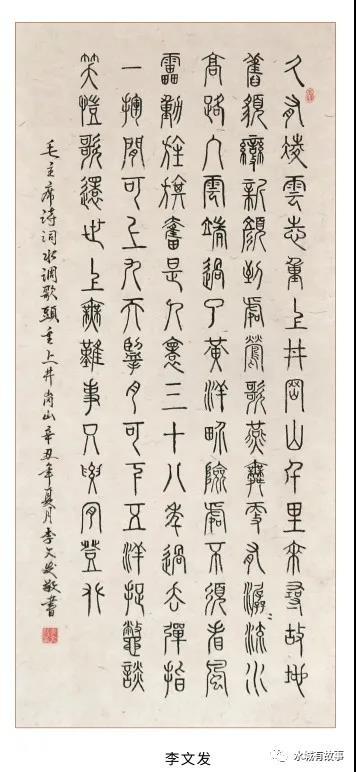 久有凌雲志重上井岡山千里來尋故地
舊貌變新顏到處鶯歌燕舞更有潺〻流水
高路入雲端過了黃洋界險處不須看風
靁動旌旗奮是人寰三十八年過去彈指
一揮間可上九天攬月可下五洋捉鱉談
笑凱歌還世上無難事只要肯登攀
毛主席詩詞水调歌頭重上井岗山辛丑年夏月李文发敬書
李文发
水城有故事